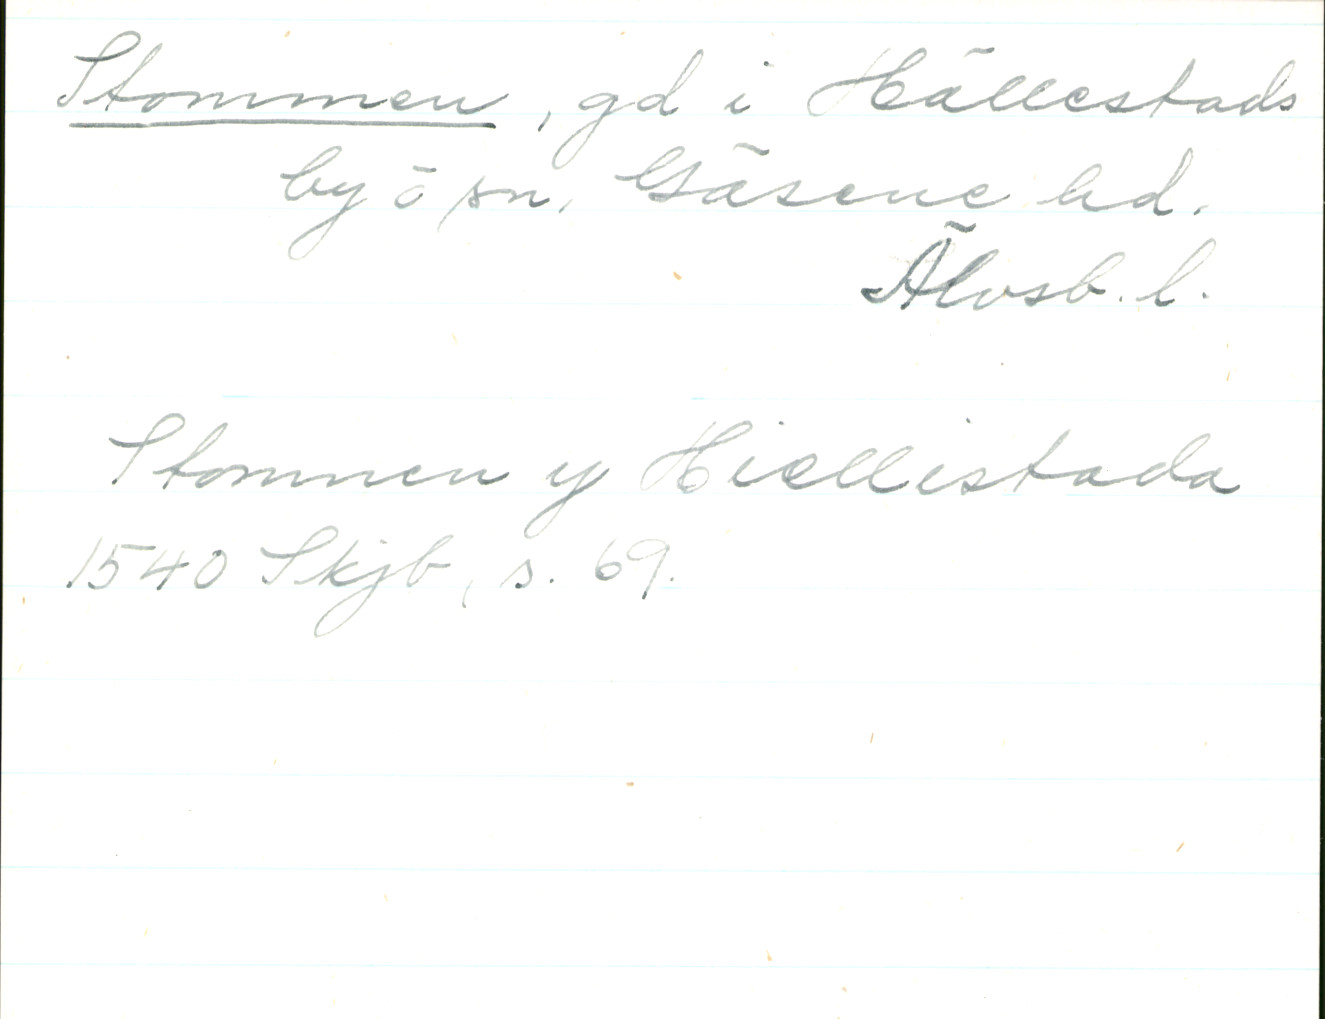 Stommen, gd i Hällestads
by o sn. Gäsene hd.
Älvsb. l.
Stommen y Hiellistada
1540 Skjb, s. 69.